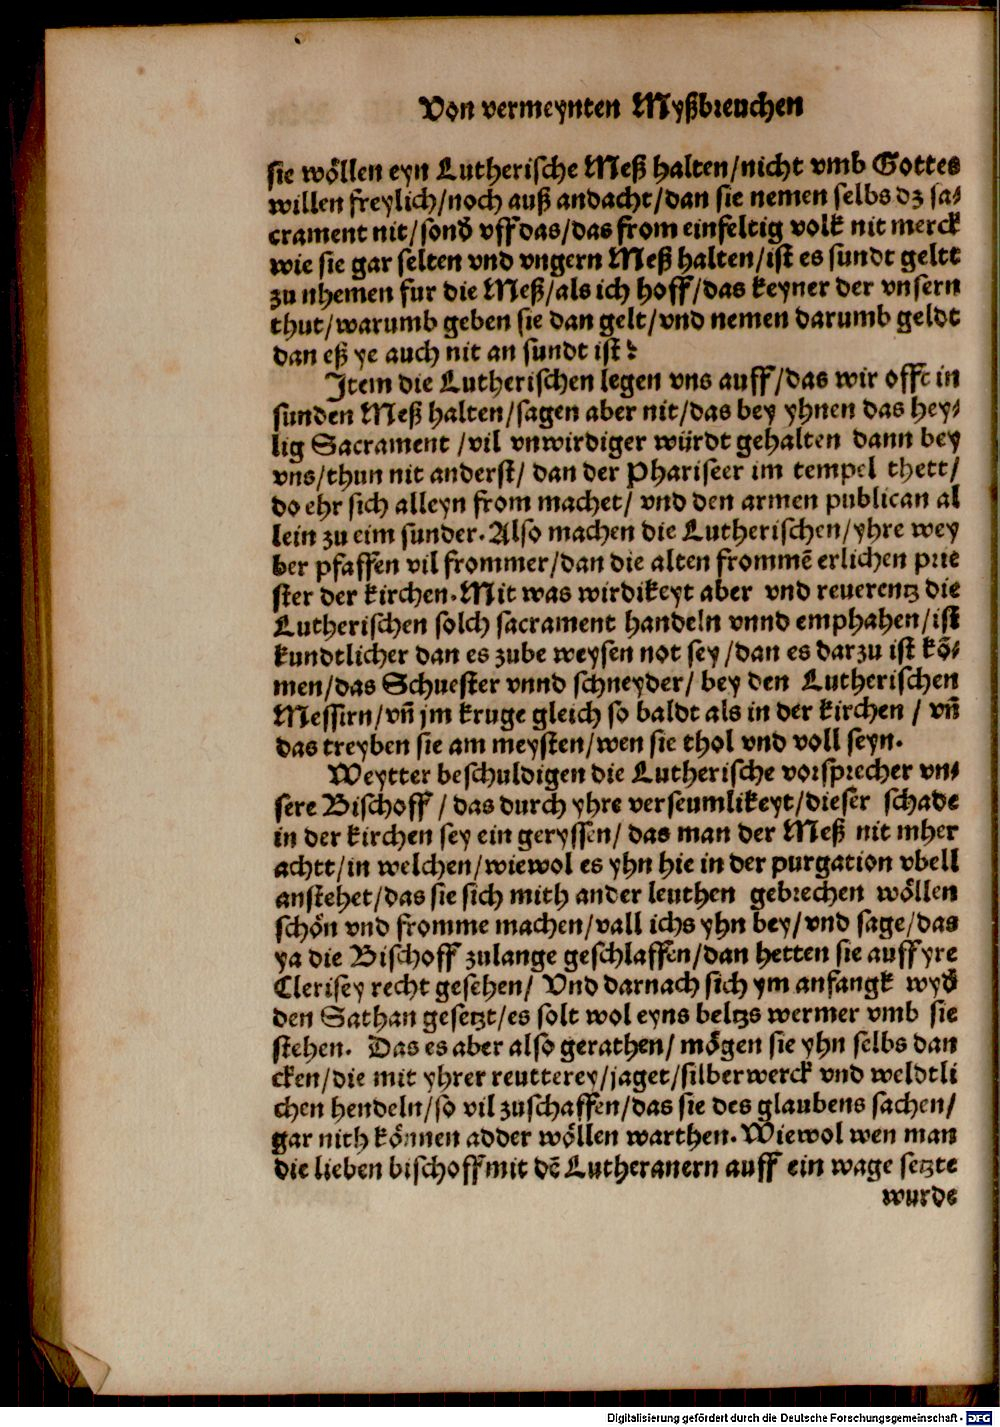 Von vermeynten Myßbreuchen
sie wöllen eyn Lutherische Meß halten/nicht vmb Gottes
willen freylich/noch auß andacht/dan sie nemen selbs dz sa⸗
crament nit/sonð vff das/das from einfeltig volk nit merck
wie sie gar selten vnd vngern Meß halten/ist es sundt geltt
zu nhemen fur die Meß/als ich hoff/das keyner der vnsern
thut/warumb geben sie dan gelt/vnd nemen darumb geldt
dan eß ye auch nit an sundt ist?
Item die Lutherischen legen vns auff/das wir offt in
sunden Meß halten/sagen aber nit/das bey yhnen das hey⸗
lig Sacrament /vil vnwirdiger würdt gehalten dann bey
vns/thun nit anderst/ dan der Phariseer im tempel thett/
do ehr sich alleyn from machet/ vnd den armen publican al
lein zu eim sunder. Also machen die Lutherischen/yhre wey
ber pfaffen vil frommer/dan die alten frommē erlichen prie
ster der kirchen. Mit was wirdikeyt aber vnd reuerentz die
Lutherischen solch sacrament handeln vnnd emphahen/ist
kundtlicher dan es zube weysen not sey /dan es darzu ist kō⸗
men/das Schuester vnnd schneyder/ bey den Lutherischen
Messirn/vñ jm kruge gleich so baldt als in der kirchen / vñ
das treyben sie am meysten/wen sie thol vnd voll seyn.
Weytter beschuldigen die Lutherische vorsprecher vn⸗
sere Bischoff / das durch yhre verseumlikeyt/dieser schade
in der kirchen sey ein geryssen/ das man der Meß nit mher
achtt/in welchen/wiewol es yhn hie in der purgation vbell
anstehet/das sie sich mith ander leuthen gebrechen wöllen
schön vnd fromme machen/vall ichs yhn bey/vnd sage/das
ya die Bischoff zulange geschlaffen/dan hetten sie auff yre
Clerisey recht gesehen/ Vnd darnach sich ym anfangk wyð
den Sathan gesetzt/es solt wol eyns beltzs wermer vmb sie
stehen. Das es aber also gerathen/ mögen sie yhn selbs dan
cken/die mit yhrer reutterey/jaget/silberwerck vnd weldtli
chen hendeln/so vil zuschaffen/das sie des glaubens sachen/
gar nith können adder wöllen warthen. Wiewol wen man
die lieben bischoff mit dē Lutheranern auff ein wage setzte
wurde
Digitalisierung gefördert durch die Deutsche Forschungsgemeinschaft - DFG